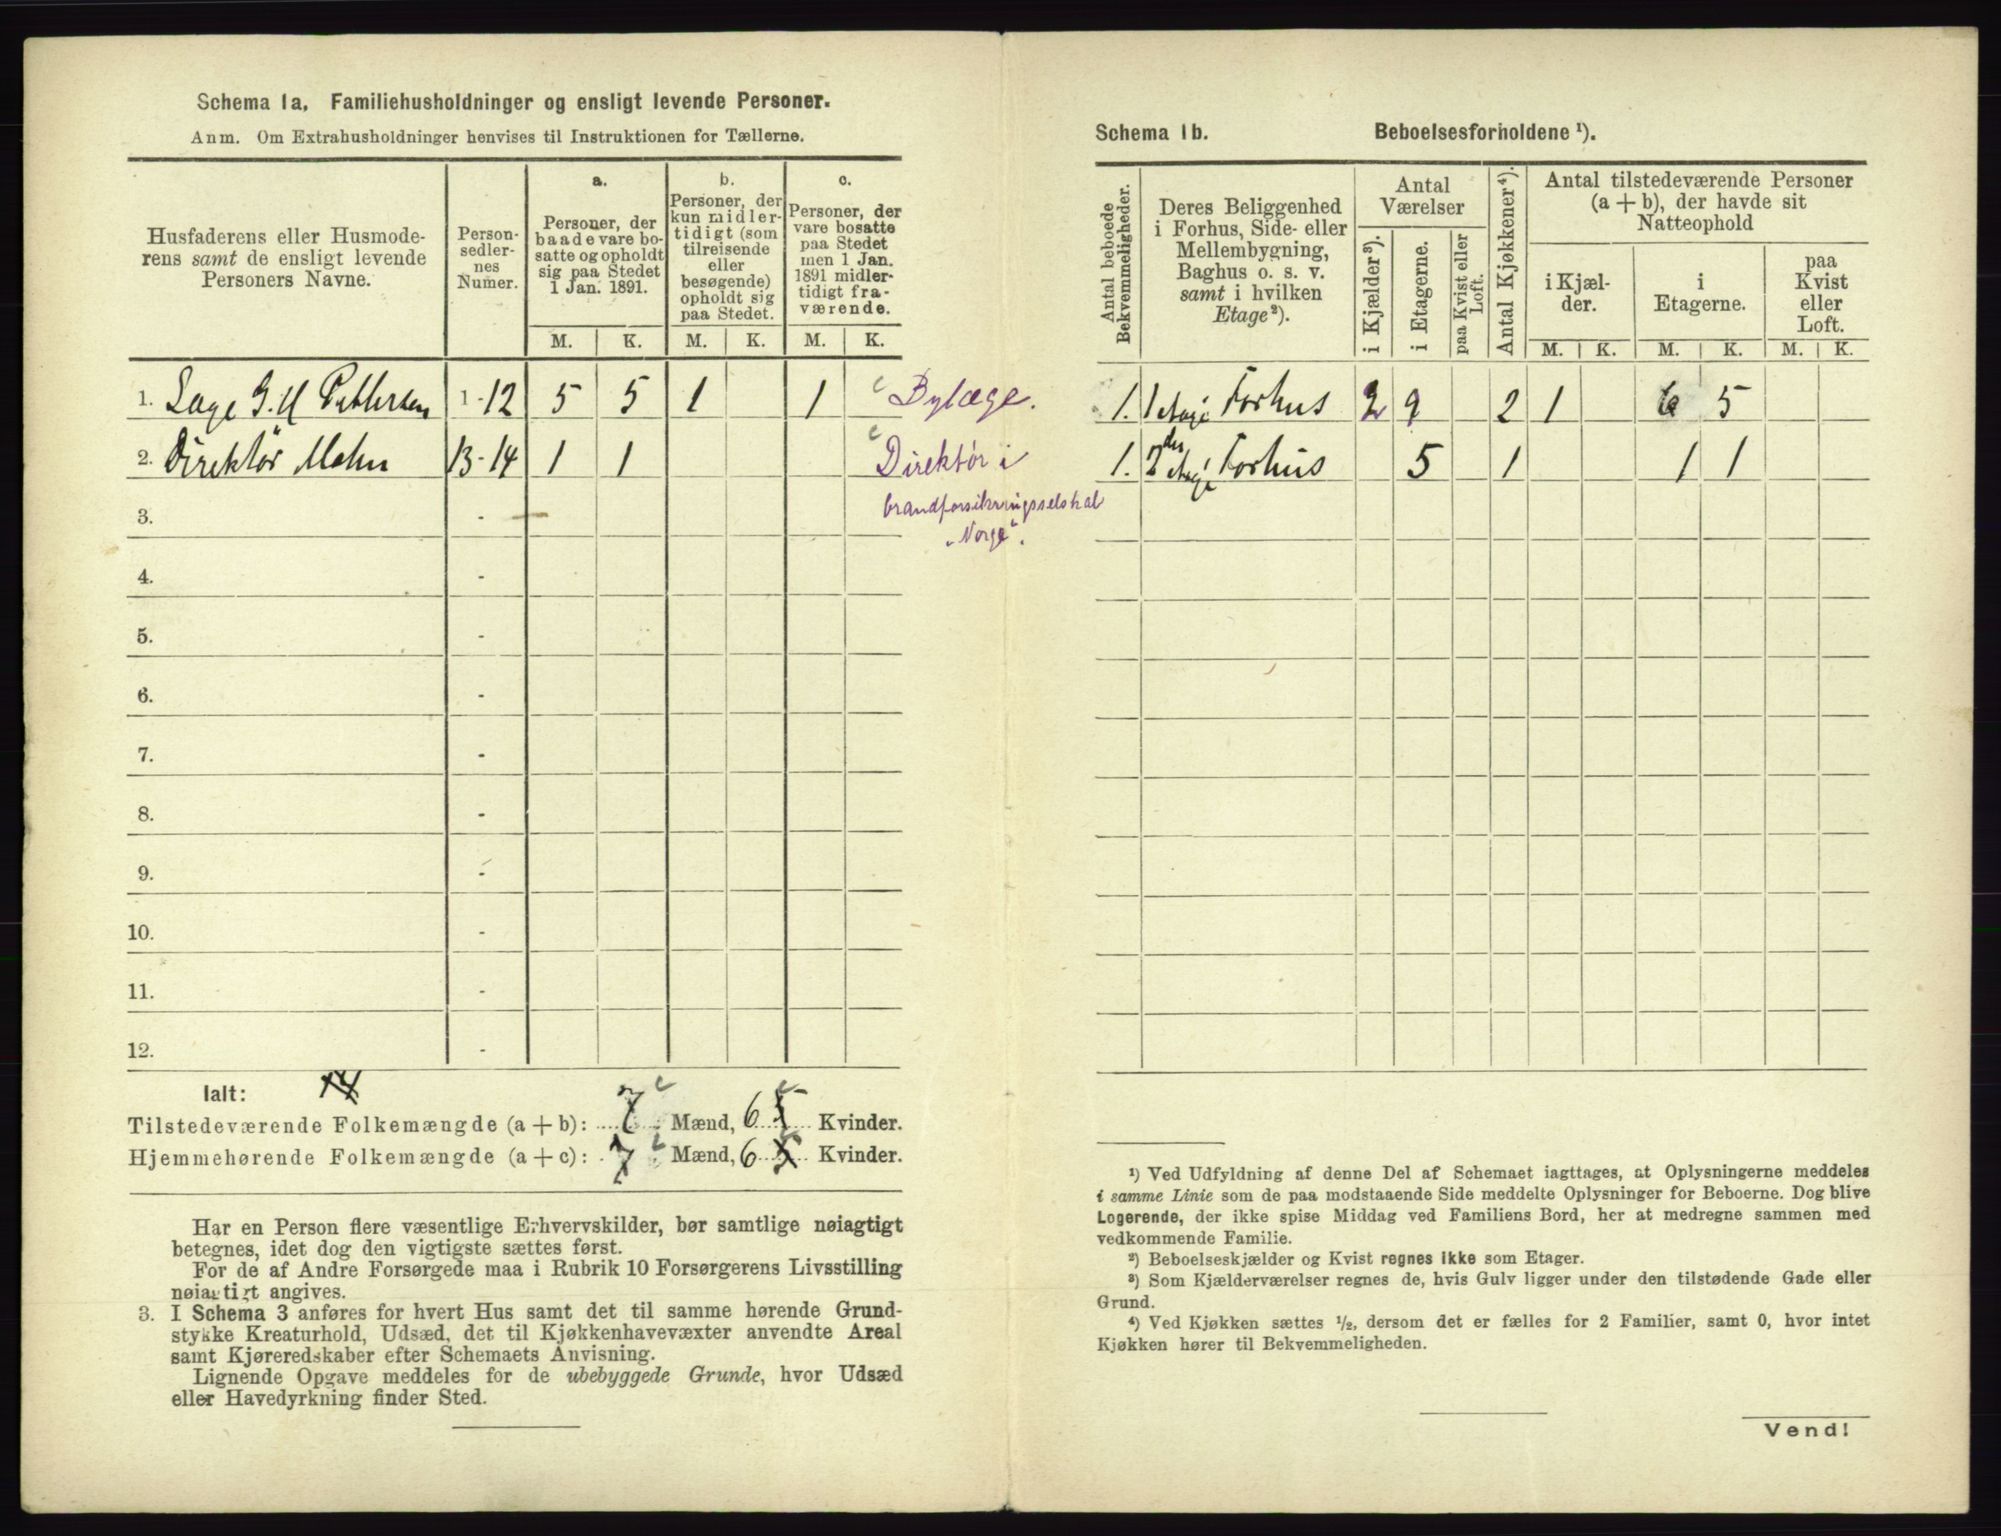 Schema 1a. Familiehusholdninger og ensligt levende Personer.
Anm. Om Extrahusholdninger henvises til Instruktionen for Tællerne.
Husfaderens eller Husmode-
rens samt de ensligt levende
Personers Navne.
Person-
sedler-
nes
Numer.
a.
Personer, der
baade vare bo-
satte og opholdt
sig paa Stedet
1 Jan. 1891.
b.
Personer, der
kun midler-
tidigt (som
tilreisende
eller
besøgende)
opholdt sig
paa Stedet.
c.
Personer, der
vare bosatte
paa Stedet
men 1 Jan.
1891 midler-
tidigt fra-
værende.
M. K. M. K. M. K.
1. Læge G. H Pettersen 1-12 5 5 1 1 Bylæge.
2. Direktør Mohn 13-14 1 1 Direktør i
brandforsikringsselskab
"Norge".
3. -
4. -
5. -
6. -
7. -
8. -
9. -
10. -
11. -
12. -
Ialt: 14
Tilstedeværende Folkemængde (a + b): 7 Mænd, 6 5 Kvinder.
Hjemmehørende Folkemængde (a + c): 7 Mænd, 6 5 Kvinder.
Har en Person flere væsentlige Erhvervskilder, bør samtlige nøiagtigt
betegnes, idet dog den vigtigste sættes først.
For de af Andre Forsørgede maa i Rubrik 10 Forsørgerens Livsstilling
nøiagtigt angives.
3. I Schema 3 anføres for hvert Hus samt det til samme hørende Grund-
stykke Kreaturhold, Udsæd, det til Kjøkkenhavevæxter anvendte Areal
samt Kjøreredskaber efter Schemaets Anvisning.
Lignende Opgave meddeles for de ubebyggede Grunde, hvor Udsæd
eller Havedyrkning finder Sted.
Schema 1b. Beboelsesforholdene ¹).
Antal beboede
Bekvemmeligheder.
Deres Beliggenhed
i Forhus, Side- eller
Mellembygning,
Baghus o. s. v.
samt i hvilken
Etage ²).
Antal
Værelser
i Kjælder ³).
i Etagerne.
paa Kvist eller
Loft.
Antal Kjøkkener ⁴).
Antal tilstedeværende Personer
(a + b), der havde sit
Natteophold
i Kjæl-
der.
i
Etagerne.
paa
Kvist
eller
Loft.
M. K. M. K. M. K.
1. 1 etage Forhus 2 9 2 1 6 5
1. 2den etage Forhus 5 1 1 1
¹) Ved Udfyldning af denne Del af Schemaet iagttages, at Oplysningerne meddeles
i samme Linie som de paa modstaaende Side meddelte Oplysninger for Beboerne. Dog blive
Logerende, der ikke spise Middag ved Familiens Bord, her at medregne sammen med
vedkommende Familie.
²) Beboelseskjælder og Kvist regnes ikke som Etager.
³) Som Kjælderværelser regnes de, hvis Gulv ligger under den tilstødende Gade eller
Grund.
⁴) Ved Kjøkken sættes ½, dersom det er fælles for 2 Familier, samt 0, hvor intet
Kjøkken hører til Bekvemmeligheden.
Vend!